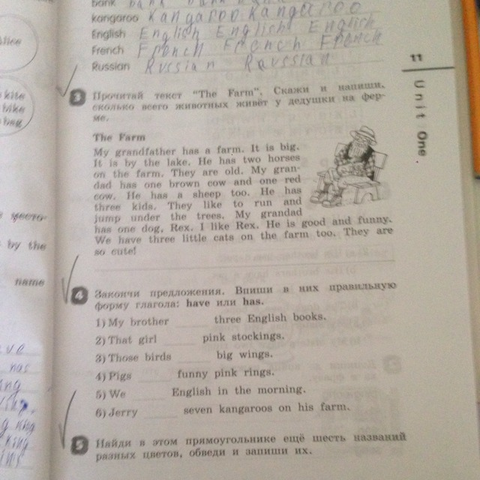 bank
kangaroo kangaroo kangaroo
English English English English
French French French French
Russian Russian Russian
11
Unit One
Alice
kite
bike
bag
by the
name
has
3 Прочитай текст "The Farm". Скажи и напиши,
сколько всего животных живёт у дедушки на фер-
ме.
The Farm
My grandfather has a farm. It is big.
It is by the lake. He has two horses
on the farm. They are old. My gran-
dad has one brown cow and one red
cow. He has a sheep too. He has
three kids. They like to run and
jump under the trees. My grandad
has one dog, Rex. I like Rex. He is good and funny.
We have three little cats on the farm too. They are
so cute!
4 Закончи предложения. Впиши в них правильную
форму глагола: have или has.
1) My brother three English books.
2) That girl pink stockings.
3) Those birds big wings.
4) Pigs funny pink rings.
5) We English in the morning.
6) Jerry seven kangaroos on his farm.
5 Найди в этом прямоугольнике ещё шесть названий
разных цветов, обведи и запиши их.